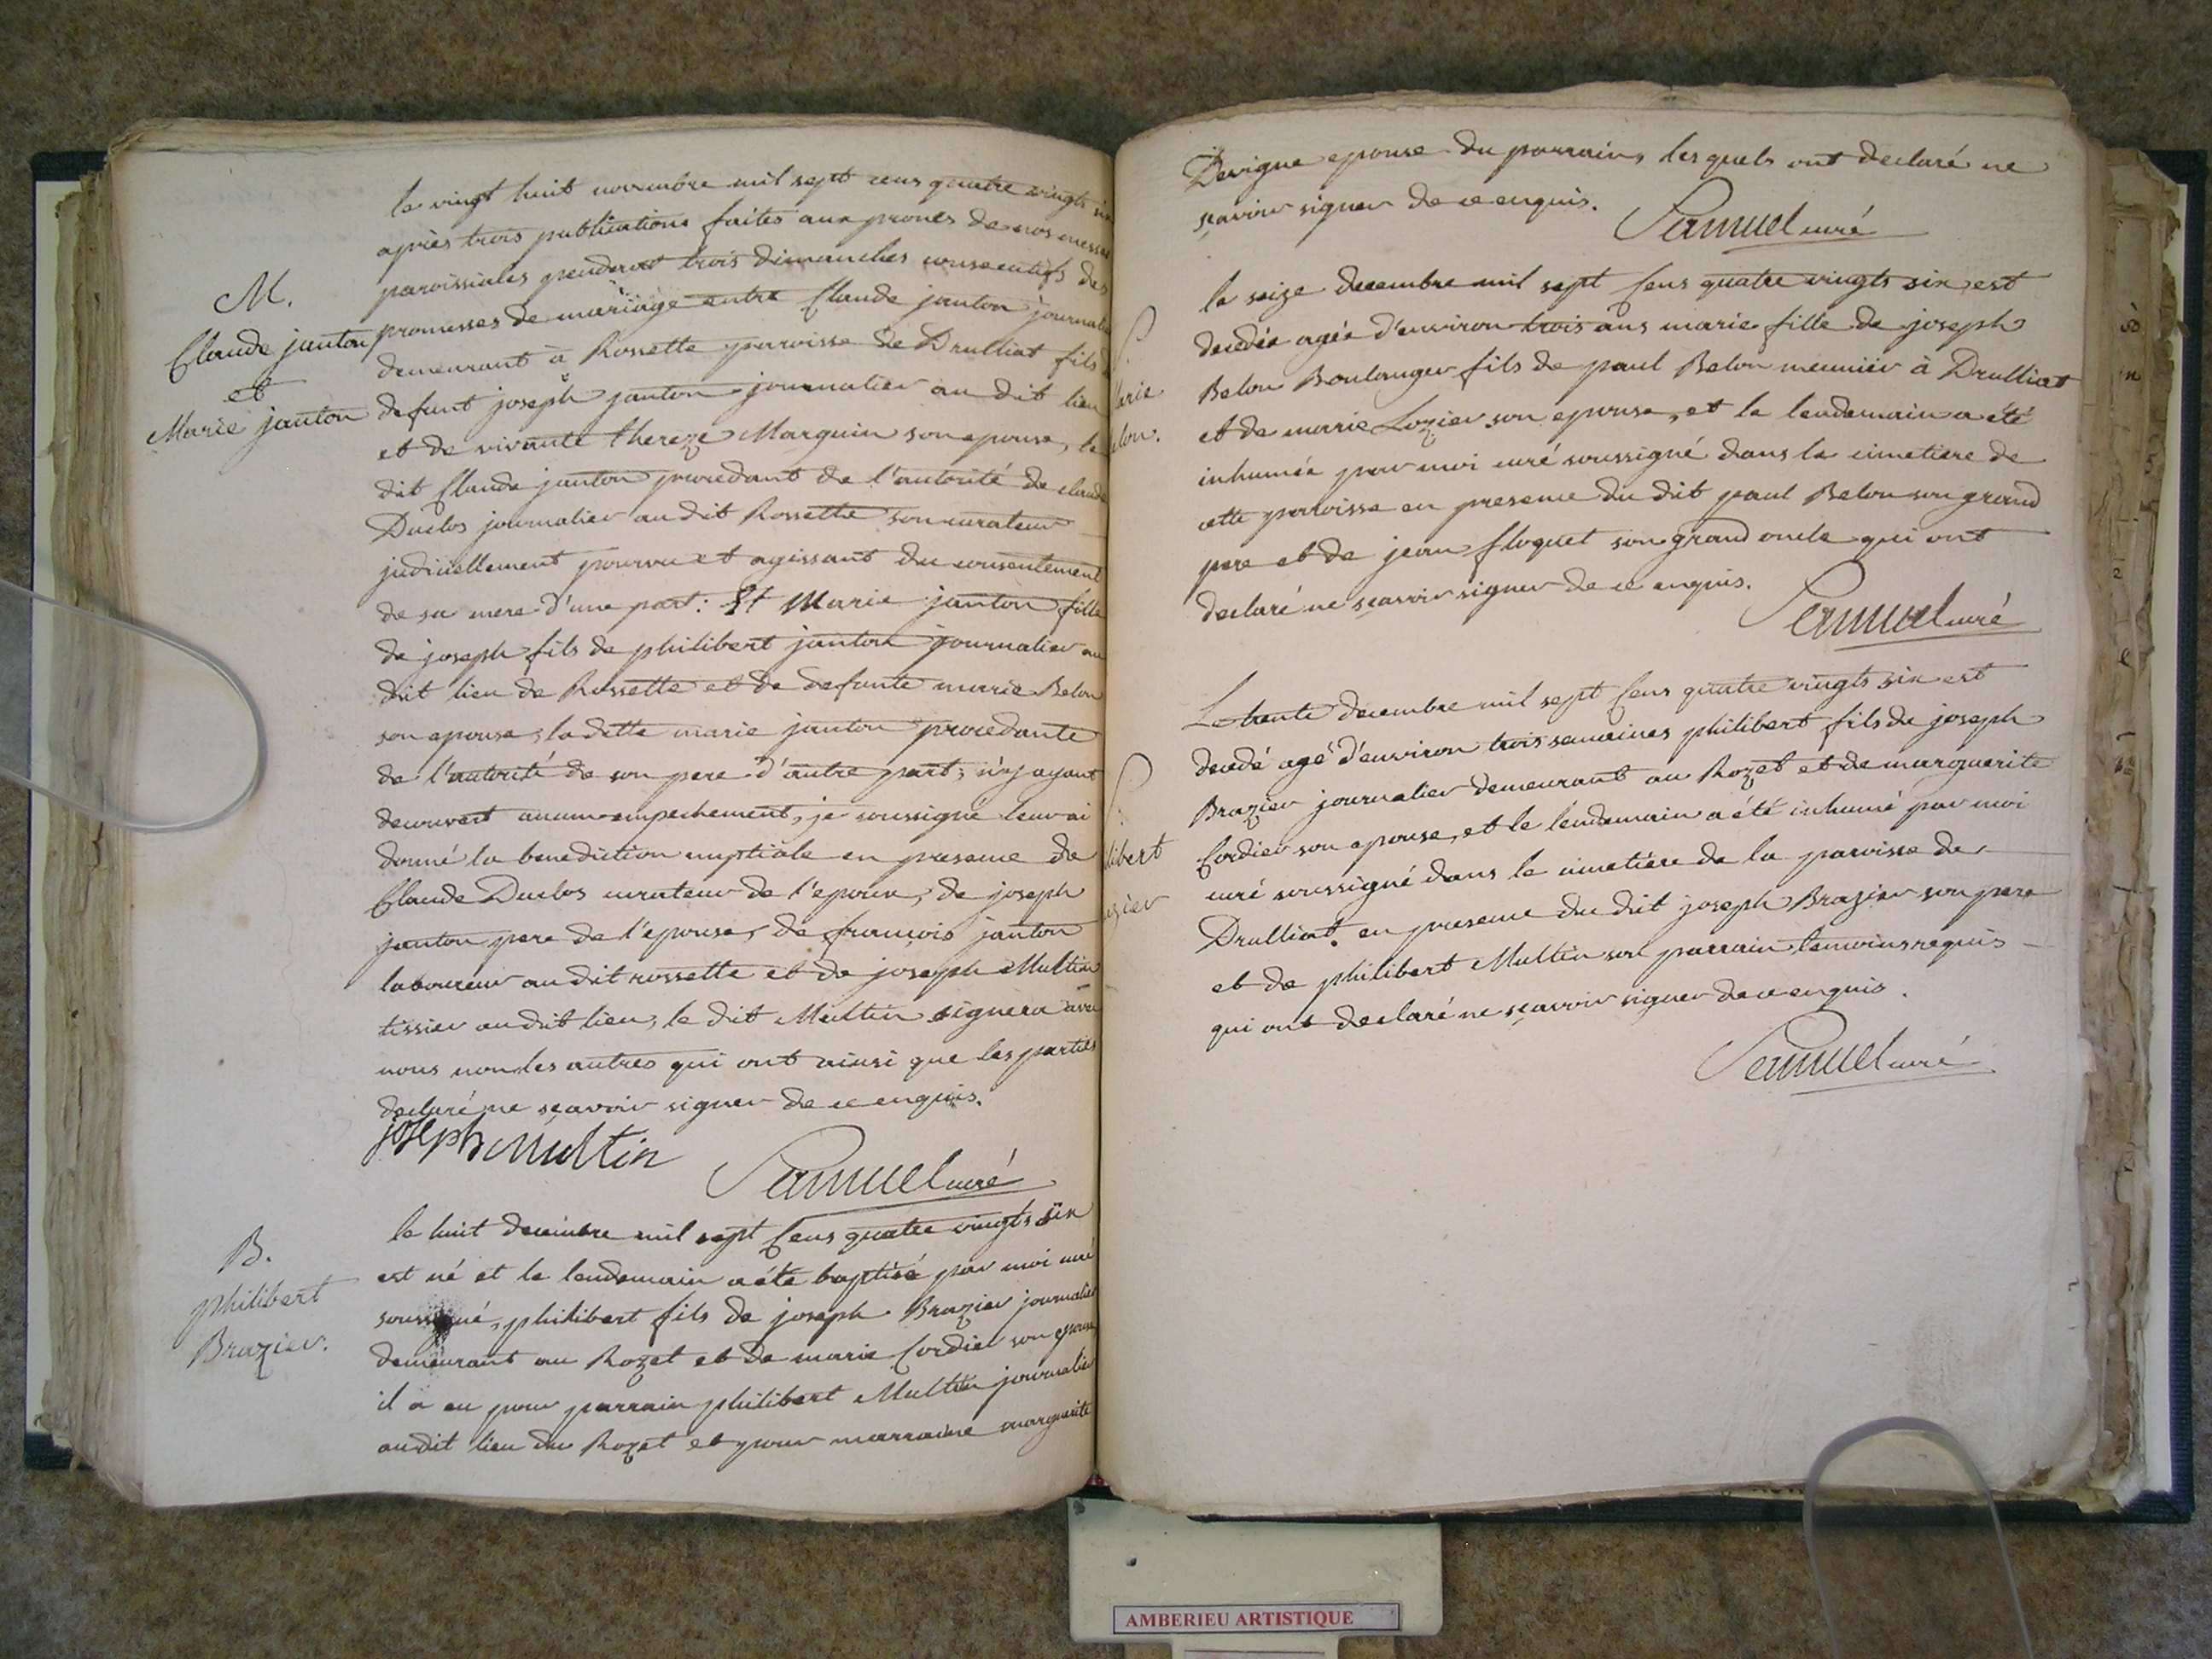 M.
Claude janton
et
Marie janton
le vingt huit novembre mil sept cens quatre vingts six
après trois publications faites aux prones de nos messes
paroissiales pendant trois dimanches consecutifs des
promesses de mariage entre Claude janton journalier
demeurant à Rossette paroisse de Drulliat fils
defunt joseph janton journalier au dit lieu
et de vivante thereze Marguin son epouse, le
dit Claude janton procedant de l'autorité de claude
Duclos journalier au dit Rossette son curateur
judiciellement pourvu et agissant du consentement
de sa mere d'une part: Et Marie janton fille
de joseph fils de philibert janton journalier au
dit lieu de Rossette et de defunte marie Belon
son epouse, la dette marie janton procedante
de l'autorité de son pere d'autre part; n'y ayant
decouvert aucun empechement, je soussigné leur ai
donné la benediction nuptiale en presence de
Claude Duclos curateur de l'epoux, de joseph
janton pere de l'epouse, de françois janton
laboureur au dit rossette et de joseph Multin
tissier au dit lieu, le dit Multin signera avec
nous non les autres qui ont ainsi que les parties
declaré ne sçavoir signer de ce enquis.
joseph multin
Samuel curé
B.
philibert
Brazier.
le huit decembre mil sept Cens quatre vingts six
est né et le lendemain a été baptisé par moi curé
soussigné, philibert fils de joseph Brazier journalier
demeurant au Rozet et de marie Cordier son epouse
il a eu pour parrain philibert Multin journalier
au dit lieu du Rozet et pour marraine marguerite
Devigne epouse du parrain, lesquels ont declaré ne
sçavoir signer de ce enquis.
Samuel curé
arie
elon.
le seize decembre mil sept Cens quatre vingts six est
decedée agée d'environ trois ans marie fille de joseph
Belon Boulanger fils de paul Belon meunier à Drulliat
et de marie Lozier son epouse, et le lendemain a été
inhumée par moi curé soussigné dans le cimetiere de
cette paroisse en presence du dit paul Belon son grand
pere et de jean floquet son grand oncle qui ont
declaré ne sçavoir signer de ce enquis.
Samuel curé
libert
azier
Le trente decembre mil sept Cens quatre vingts six est
decedé agé d'environ trois semaines philibert fils de joseph
Brazier journalier demeurant au Rozet et de marguerite
Cordier son epouse, et le lendemain a été inhumé par moi
curé soussigné dans le cimetiére de la paroisse de
Drulliat. en presence du dit joseph Brazier son pere
et de philibert Multin son parrain temoins requis
qui ont declaré ne sçavoir signer de ce enquis.
Samuel curé
AMBERIEU ARTISTIQUE